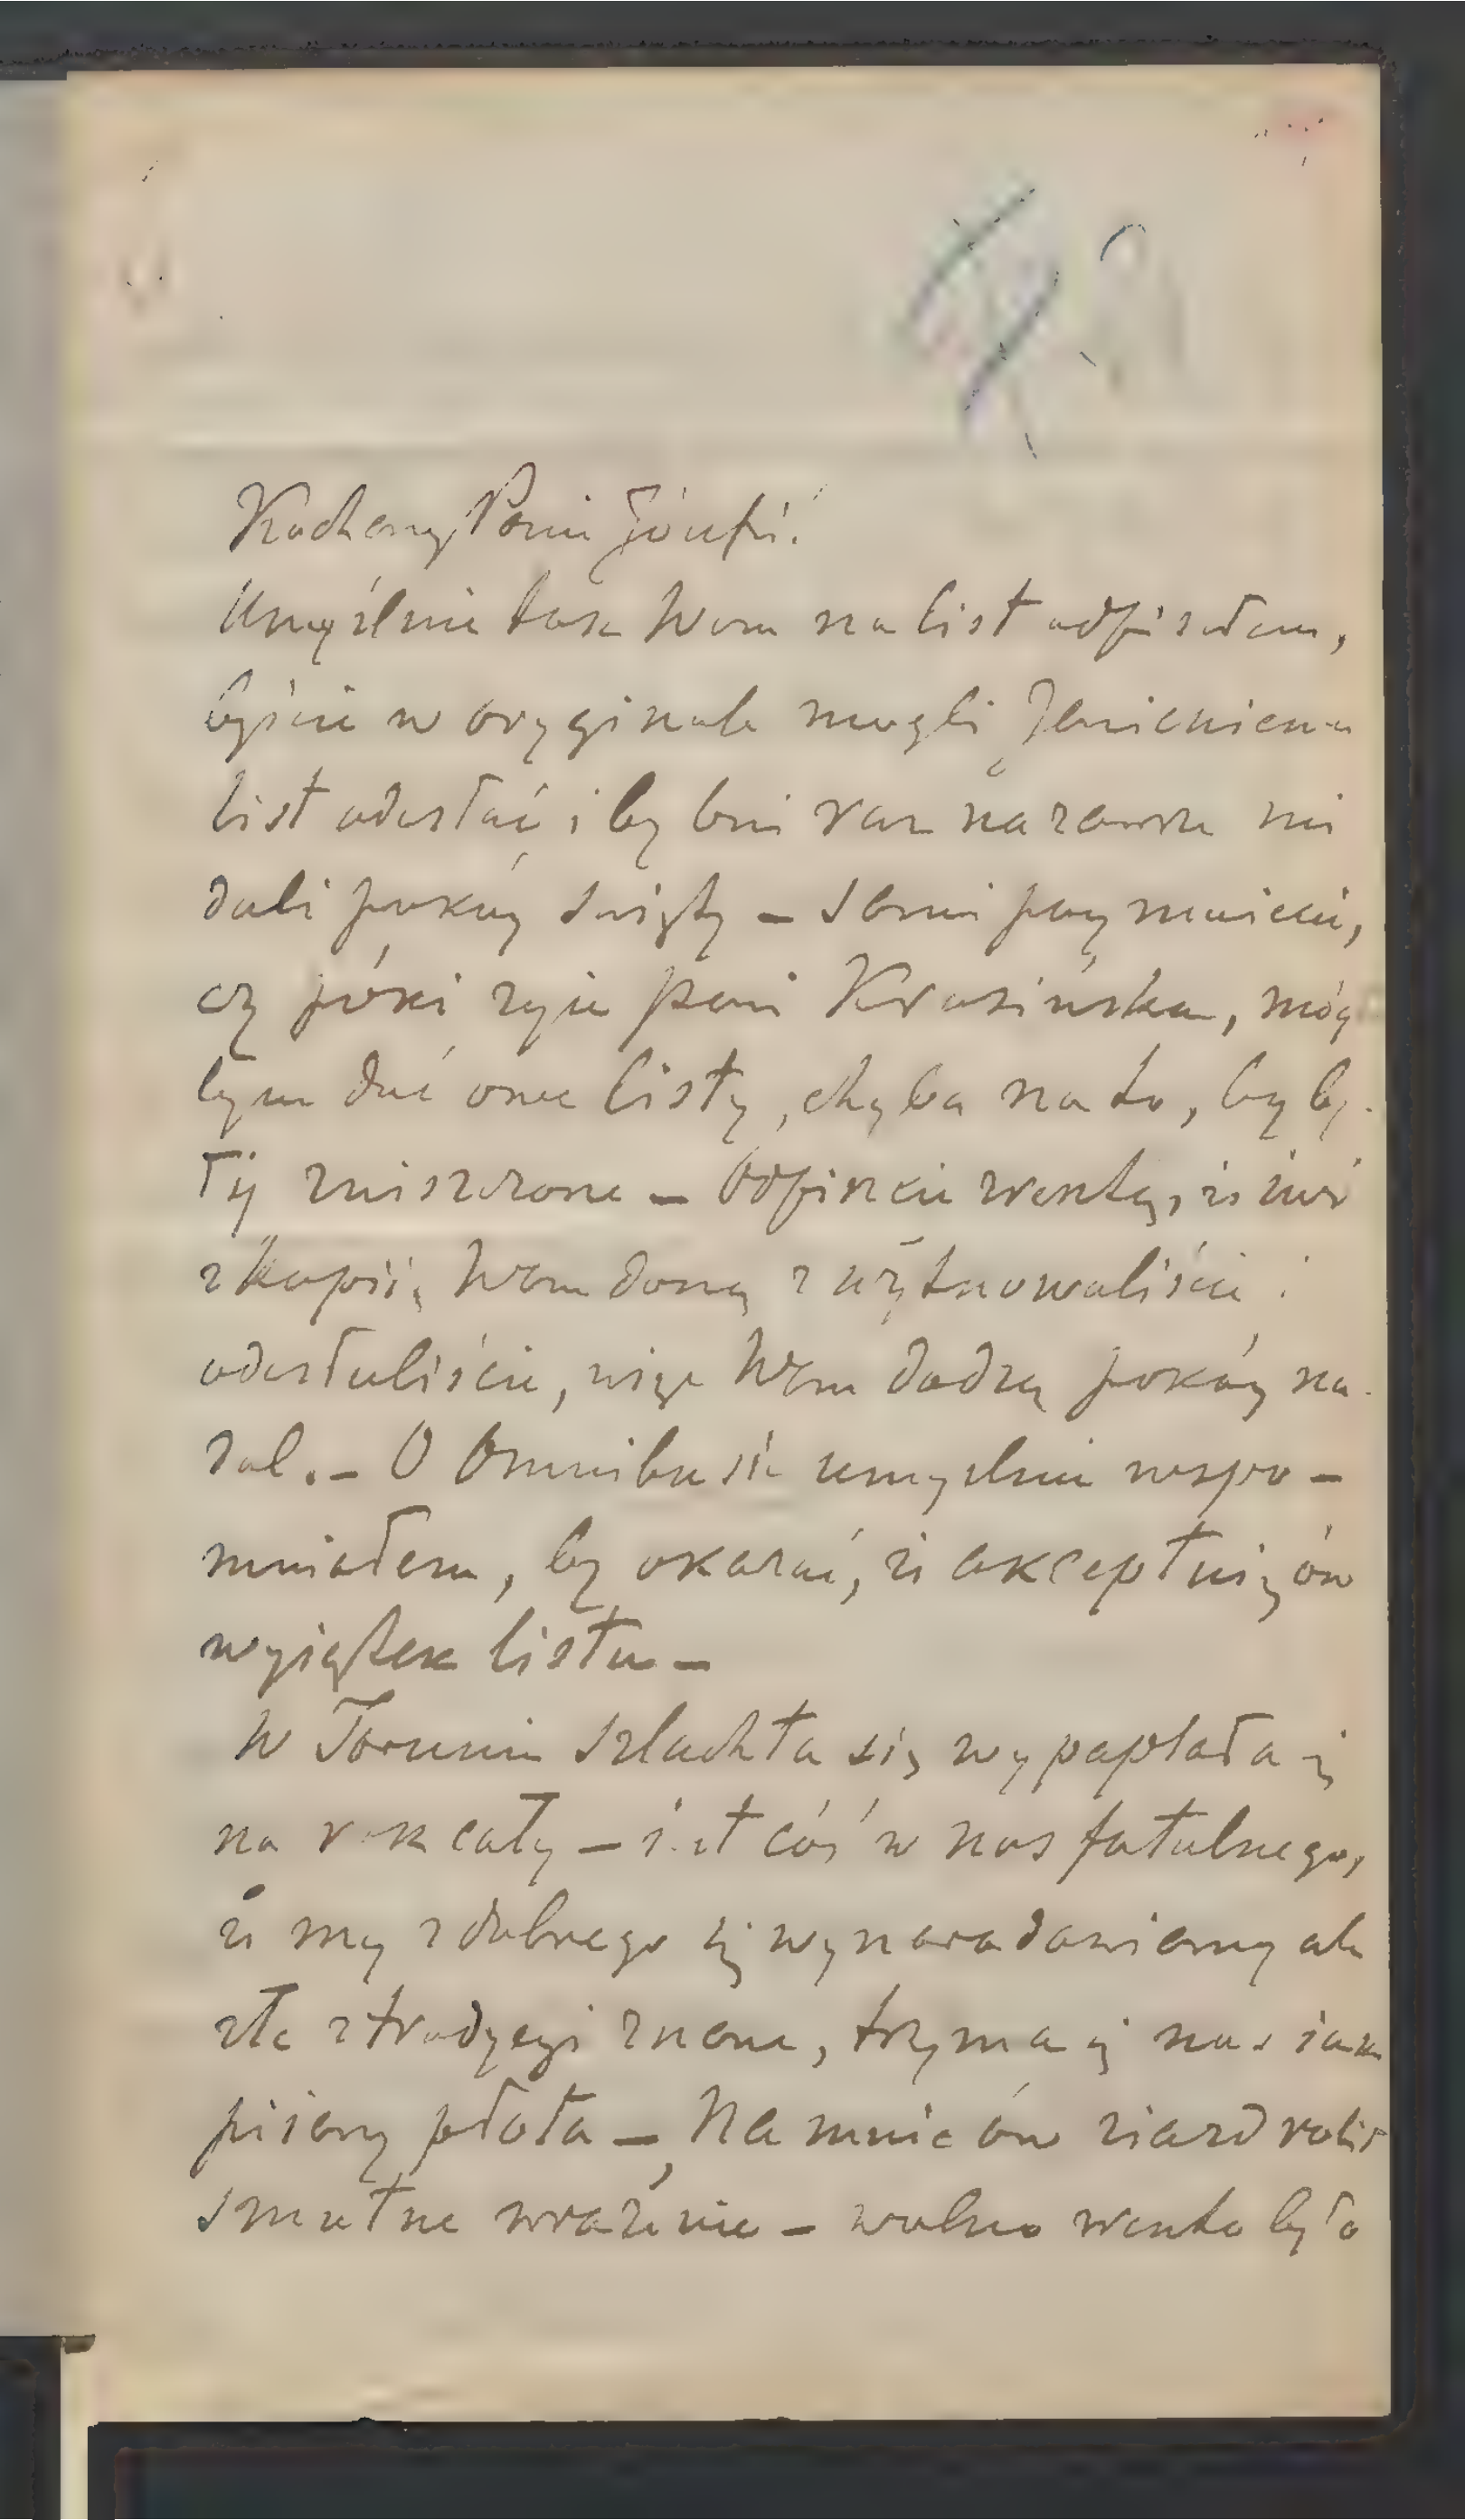 Kochany Panie Józefie!
Umyślnie tak Wam na list odpisałem,
byście w oryginale mogli Jenikiemu
list odesłać i by Oni raz na zawsze mi
dali pokój święty – Sami pojmniecie,
czy póki żyje pani Krasińska, móg
łym dać one listy, chyba na to, by by-
ły zniszczone – Odpiszcie resztę, iż iuż
z kopii, Wam daną zużytkowaliście i
odesłaliście, więc Wam dadzą pokój na-
dal. – O Omnibusie umyślnie wspo –
mniałem, by okazać, iż akceptuię ów
wyiątek listu –
W Toruniu szlachta się wypaplała
na rok cały – iest cóś w nas fatalnego,
iż my z dobrego się wynaradawiamy ale
złe z tradycyi znane, trzyma się nas iak
pijany płota – Na mnie ów ziazd robi
smutne wrażenie – wolno reszta było